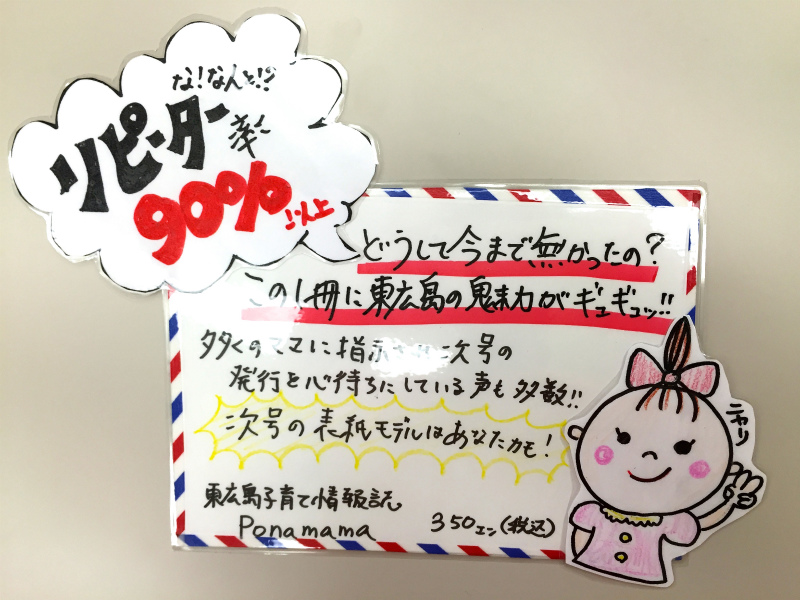 な!なんと!?
リピーター率
90%以上
どうして今まで無かったの?
この1冊に東広島の魅力がギュギュッ!!
多くのママに指示され次号の
発行を心待ちにしている声も多数!!
次号の表紙モデルはあなたかも!
ニヤリ
東広島子育て情報誌
Ponamama 350エン(税込)